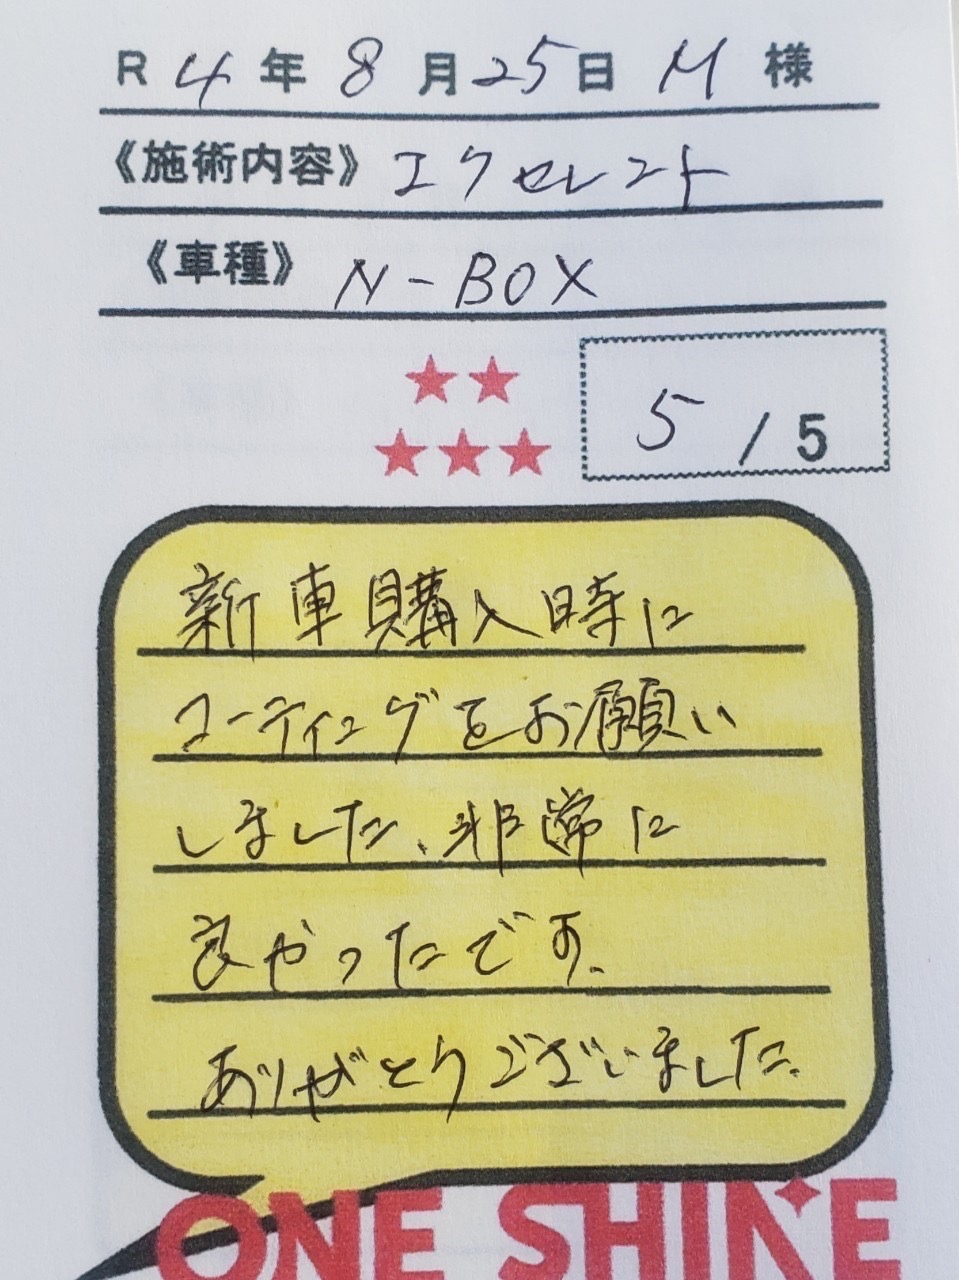 R 4 年 8 月 25 日 M 様
《施術内容》 エクセレント
《車種》 N-BOX
5 / 5
新車購入時に
コーティングをお願い
しました、非常に
良かったです。
ありがとうございました。
ONE SHINE